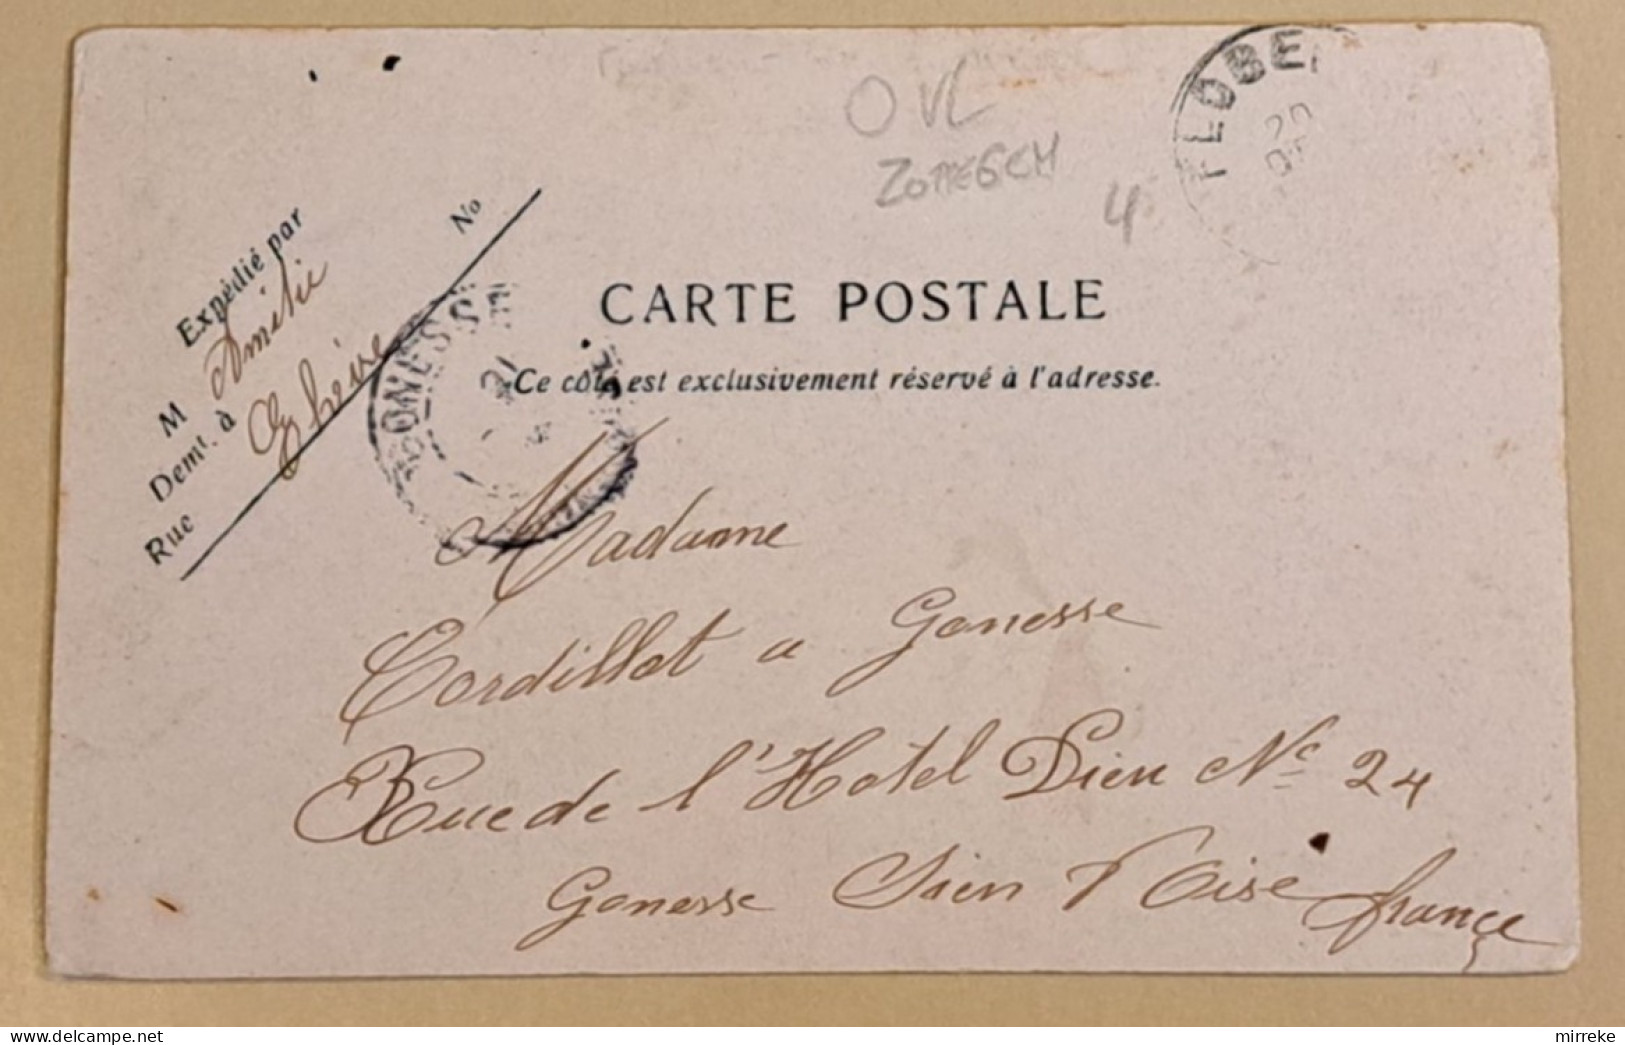 O VL
ZOTTEGEM
4
FLOBE
20
Expédié par
M Amitié
Demt. à
Rue
No
GONESSE
21
CARTE POSTALE
Ce côté est exclusivement réservé à l'adresse.
Madame
Cordillot a Gonesse
Rue de l'Hotel Dieu No 24
Gonesse Sein & Oise france
mirreke